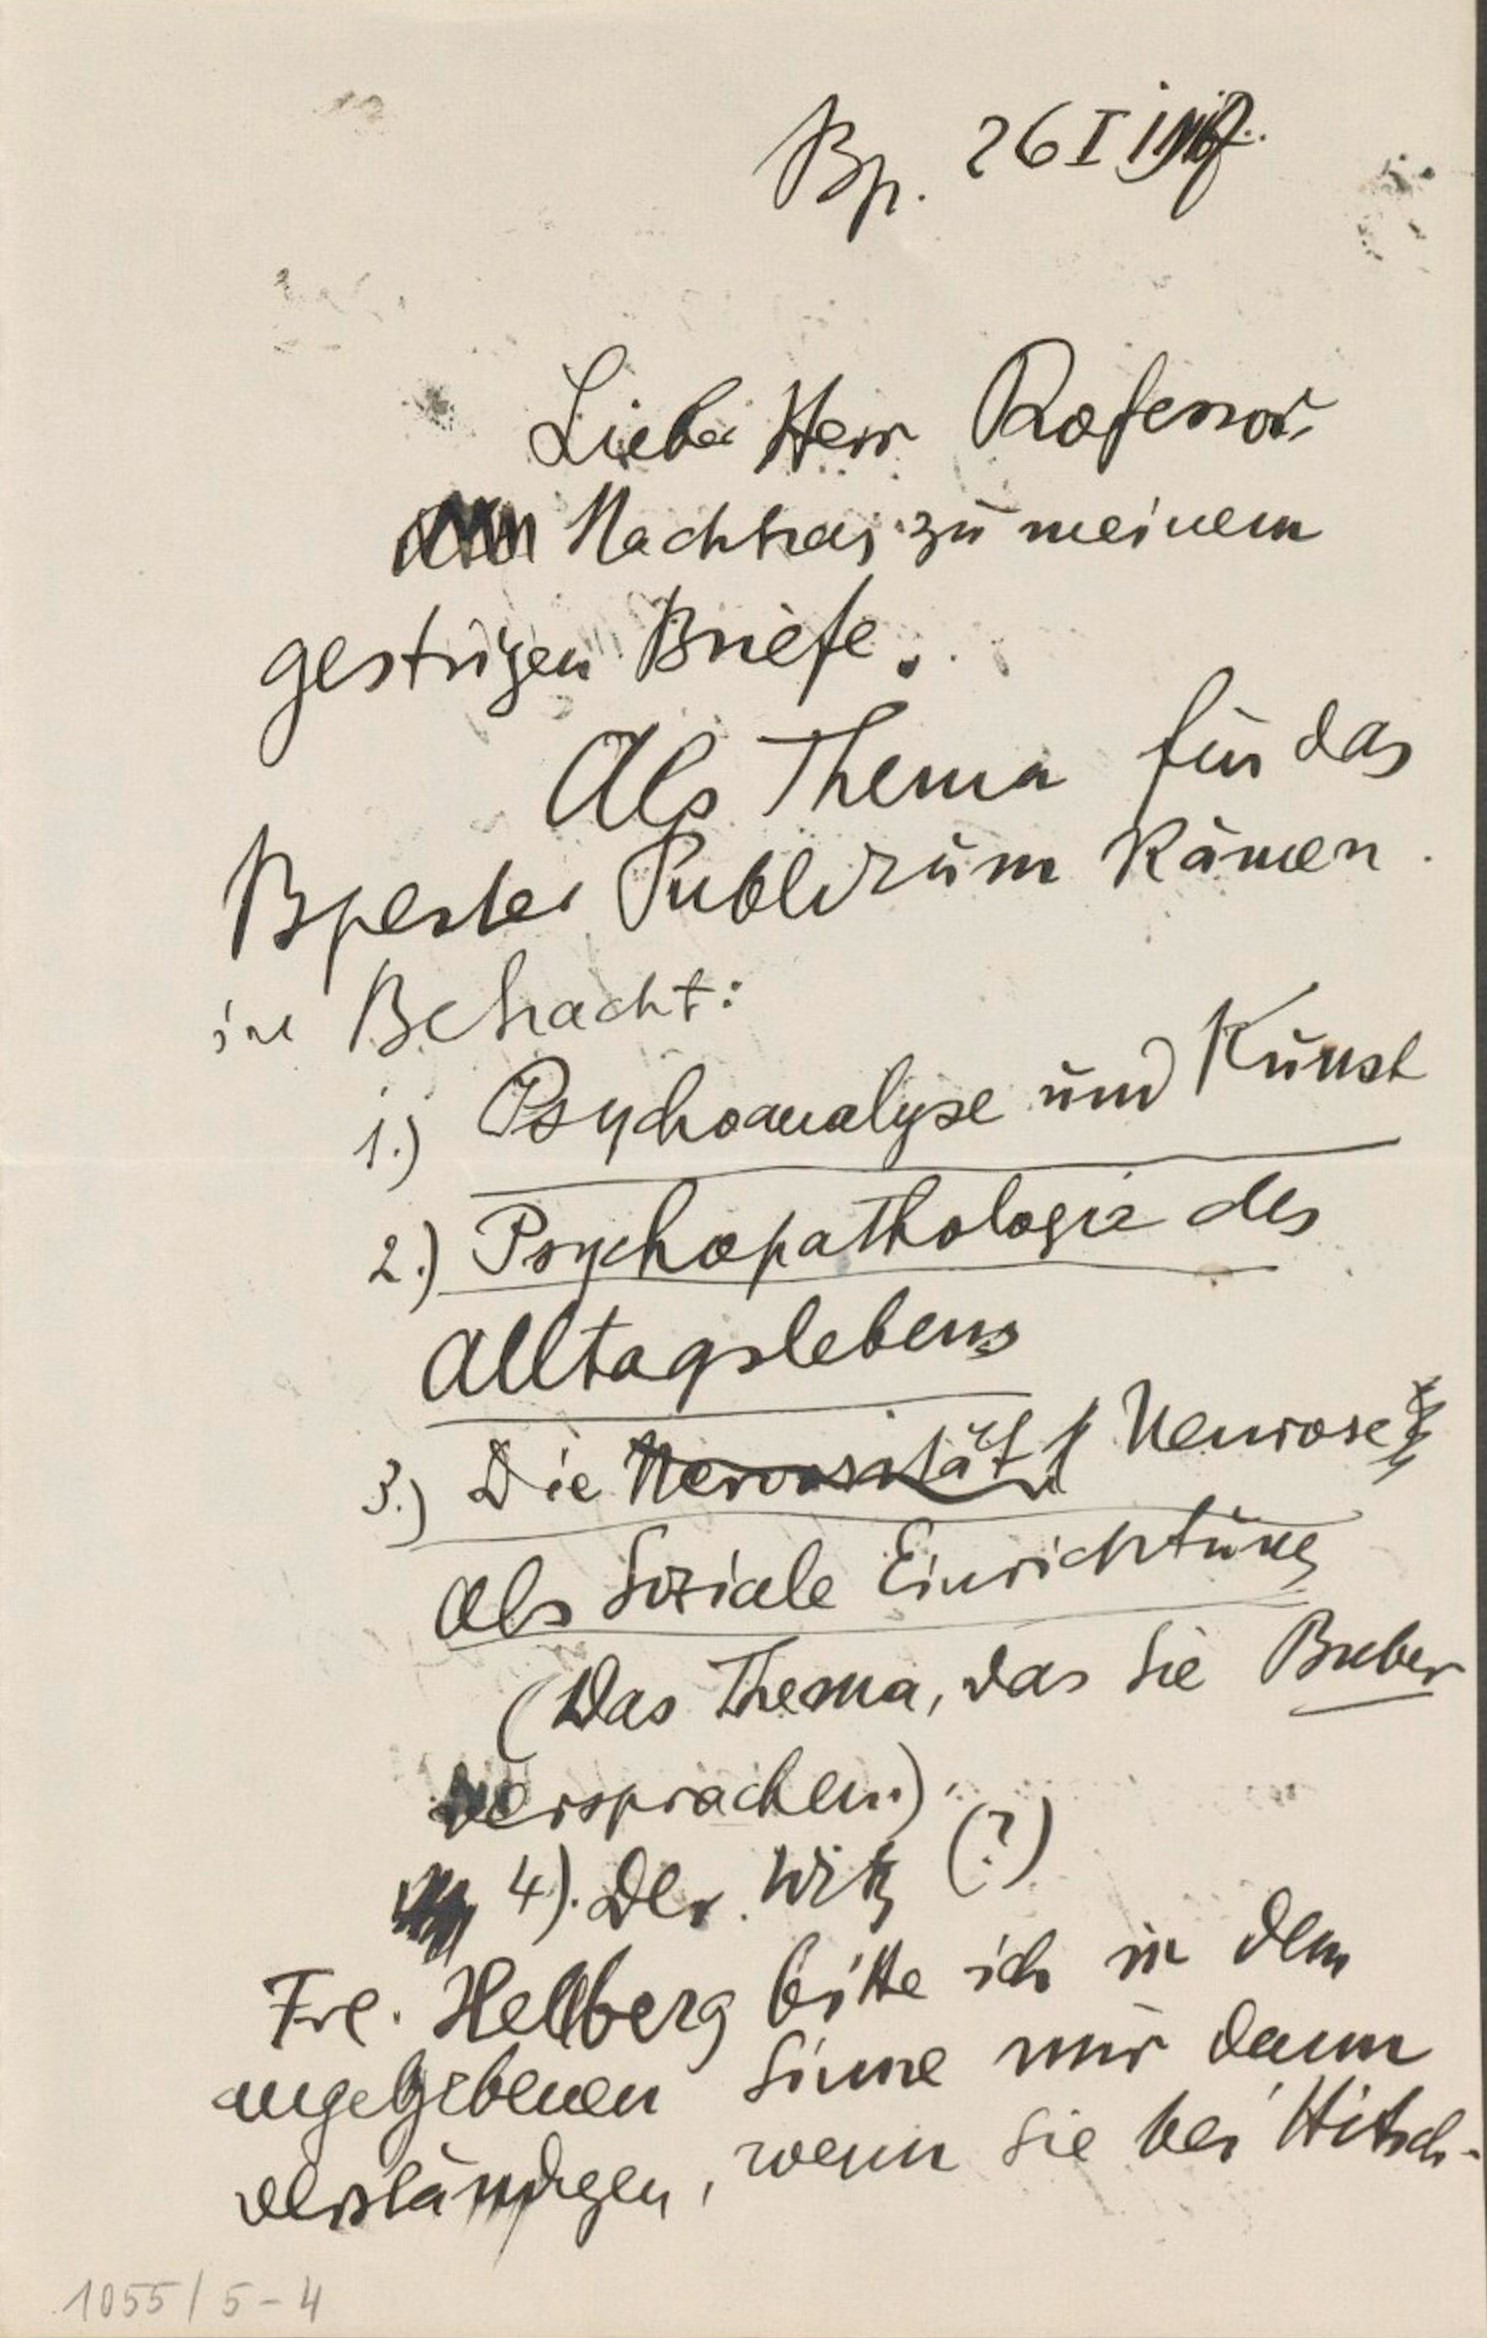 Bp. 26 I
Lieber Herr Professor,
Nachtrag zu meinem
gestrigen Briefe.
Als Thema für das
Bpester Publikum kämen
in Betracht:
1.) Psychoanalyse und Kunst
2.) Psychopathologie des
Alltagslebens
3.) Die Nervosität Neurose
als soziale Einrichtung
(Das Thema, das Sie Buber
versprachen.)
4). Der Witz (?)
Frl. Hellberg bitte ich in dem
angegebenen Sinne nur dann
verständigen, wenn Sie bei Hitsch-
1055/5-4